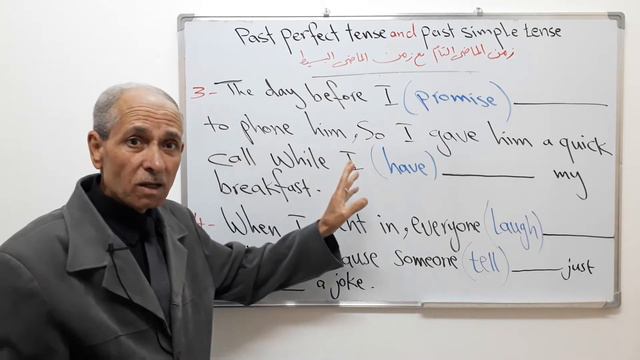 Past perfect tense and past simple tense
زمن الماضي التام مع زمن الماضي البسيط
3- The day before I (promise) ________
to phone him, So I gave him a quick
call while I (have) ________ my
breakfast.
4- When I went in, everyone (laugh) ________
because someone (tell) ____ just
____ a joke.